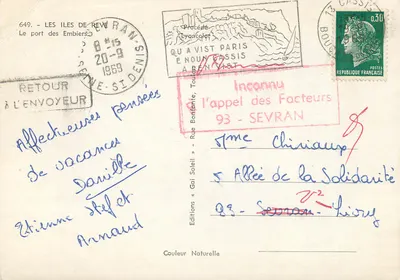 649. - LES ILES DE REVE
Le port des Embiez
SEVRAN
8 H 15
20-9
1969
NE-ST DENIS
RETOUR
A L'ENVOYEUR
QU A VIST PARIS
E NOUN CASSIS
A REN VIST
13 CASSIS
BOUCHES
0,30
REPUBLIQUE FRANÇAISE
Inconnu
à l'appel des Facteurs
93 - SEVRAN
Affectueuses pensées
de vacances
Danielle
Etienne Stef et
Arnaud
Editions « Gai Soleil » - Rue Bonfante, Toulon
Mme Chiriaux
5 Allée de la Solidarité
93 - Sevran - Livry
Couleur Naturelle